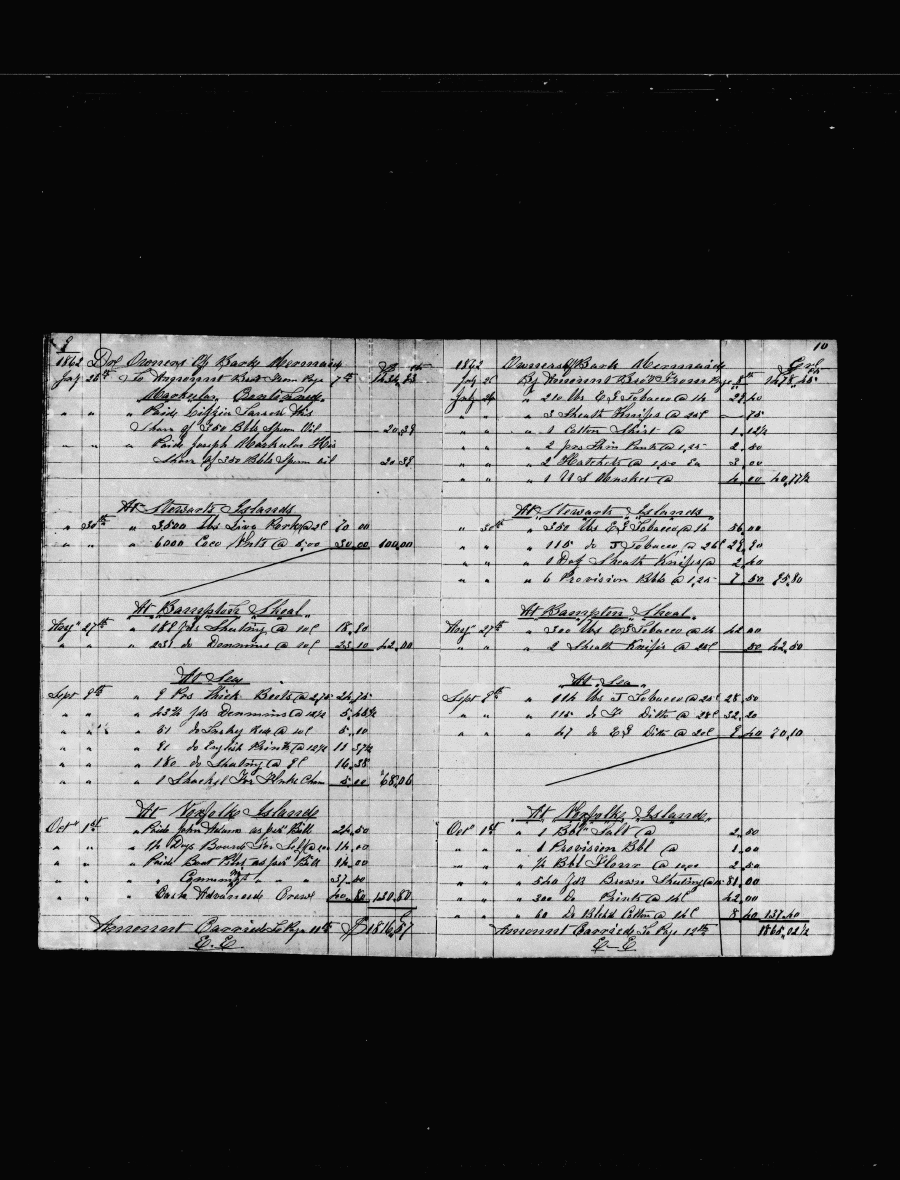 9
1862 Dr Owners Of Bark Mermaid
July 26th To Amount Brot from Page 7th 1434,43
Continued
" " " Paid Griffin his
Share of 350 Bbls Sperm Oil 20,39
" " " Paid Joseph his
Share of 350 Bbls Sperm Oil 20.39
At Stewarts Islands
" 30th " 3500 lbs Live Pork @ 2c 70 00
" " " 6000 Coco Nuts @ 5,00 30.00 100,00
At Bampton Shoal
Aug" 27th " 189 yds Sheeting @ 10c 18.90
" " " 231 do Dennims @ 10c 23.10 42.00
At Sea
Sept 9th " 9 Prs Thick Boots @ 2,75 24,75
" " " 43¾ yds Dennims @ 12½ 5,46½
" " " 51 do Turkey Red @ 10c 5.10
" " " 91 do English Prints @ 12½ 11 37½
" " " 180 do Sheeting @ 9c 16.38
" " " 1 Shackel For Fluke Chain 5.00 68,06
At Norfolk Island
Oct" 1st " Paid John Adams as per Bill 24,50
" " " 14 Days Board For Self @ 14.00
" " " Paid Boat as per Bill 14.00
" " " " " " 37.50
" " " Cash Advanced Crew 40.80 130,80
Amount Carried To Page 11th $1816,57
E. E.
10
1862 Owners Of Bark Mermaid Cr
July 26 By Amount Brot From Page 8th 1478,45
July 26 " 210 lbs E J Tobacco @ 14 29,40
" " " 3 Sheath Knifs @ 25c 75
" " " 1 Cotton Shirt @ 1.12½
" " " 2 prs Thin Pants @ 1,25 2.50
" " " 2 Hatchets @ 1,50 Ea 3.00
" " " 1 U S Musket @ 4.00 40,77½
At Stewarts Islands
" 30th " 350 lbs E J Tobacco @ 16 56,00
" " " 115 do J Tobacco @ 26c 29.90
" " " 1 Doz Sheath Knifs @ 2,40
" " " 6 Provision Bbls @ 1,25 7.50 95,80
At Bampton Shoal
Aug" 27th " 300 lbs E J Tobacco @ 14 42.00
" " " 2 Sheath Knifs @ 25c 50 42,50
At Sea
Sept 9th " 114 lbs J Tobacco @ 25c 28,50
" " " 115 do Ditto @ 28c 32,20
" " " 47 do E J Ditto @ 20c 9.40 70,10
At Norfolk Island
Oct" 1st " 1 Bbl Salt @ 2.50
" " " 1 Provision Bbl @ 1.00
" " " ¼ Bbl Flour @ 10,00 2.50
" " " 540 yds Brown Sheeting @ 15 81.00
" " " 300 Do Prints @ 14c 42.00
" " " 60 Do Blchd Cotton @ 14c 8.40 137.40
Amount Carried To Page 12th 1865,02½
E. E